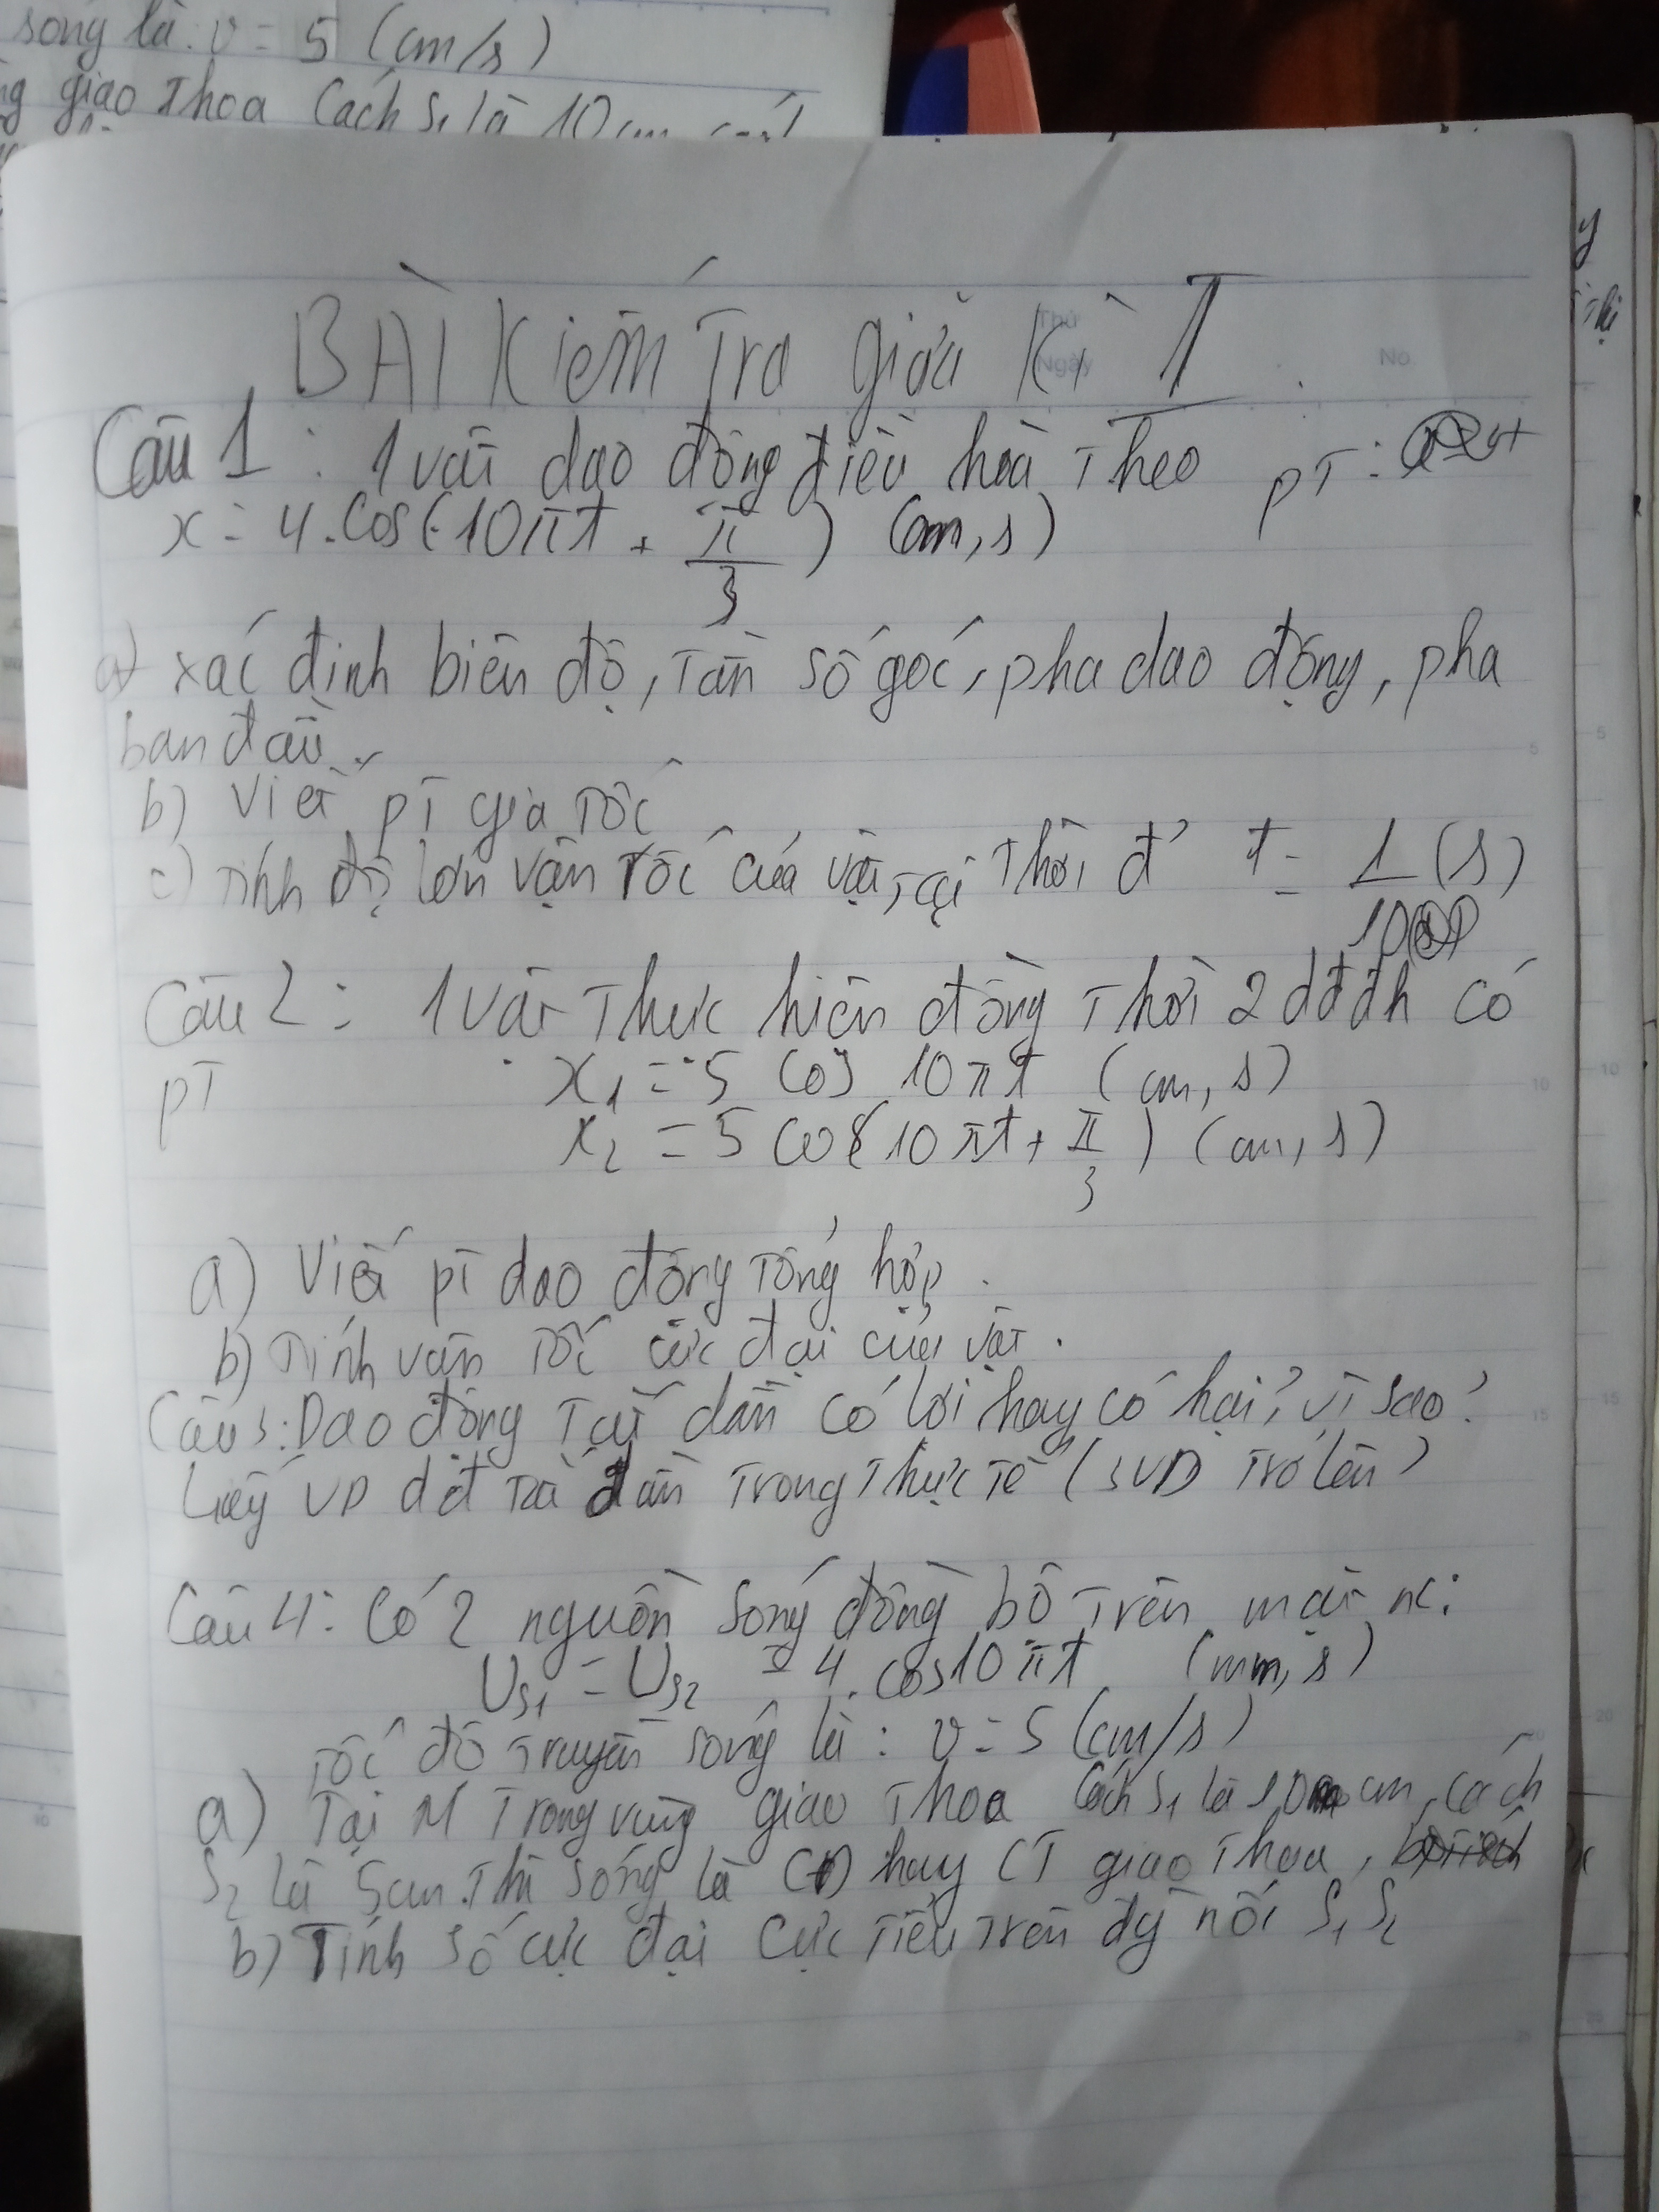 song là. v = 5 (cm/s)
giao thoa cách S1 là 10 cm
BÀI Kiểm Tra giữa Kì I
Thứ
Ngày
No.
Câu 1 : 1 vật dao động điều hoà Theo PT :
x = 4.cos(10πt + π/3) (cm, s)
a) xác định biên độ, tần số góc, pha dao động, pha
ban đầu.
b) Viết PT gia tốc
c) Tính độ lớn vận tốc của vật tại thời đ' t = 1/10 (s)
Câu 2 : 1 vật thực hiện đồng thời 2 dđđh có
PT x1 = 5 cos 10πt (cm, s)
x2 = 5 cos(10πt + π/3) (cm, s)
a) Viết pt dao động tổng hợp.
b) Tính vận tốc cực đại của vật.
Câu 3: Dao động Tắt dần có lợi hay có hại? vì sao?
Lấy VD dđ tắt dần trong thực tế (3VD trở lên)
Câu 4: Có 2 nguồn sóng đồng bộ trên mặt nc:
US1 = US2 = 4.cos10πt (mm, s)
Tốc độ truyền sóng là : v = 5 (cm/s)
a) Tại M trong vùng giao thoa cách S1 là 10 cm, cách
S2 là 5cm. Thì sóng là CĐ hay CT giao thoa,
b) Tính số cực đại cực tiểu trên đg nối S1 S2